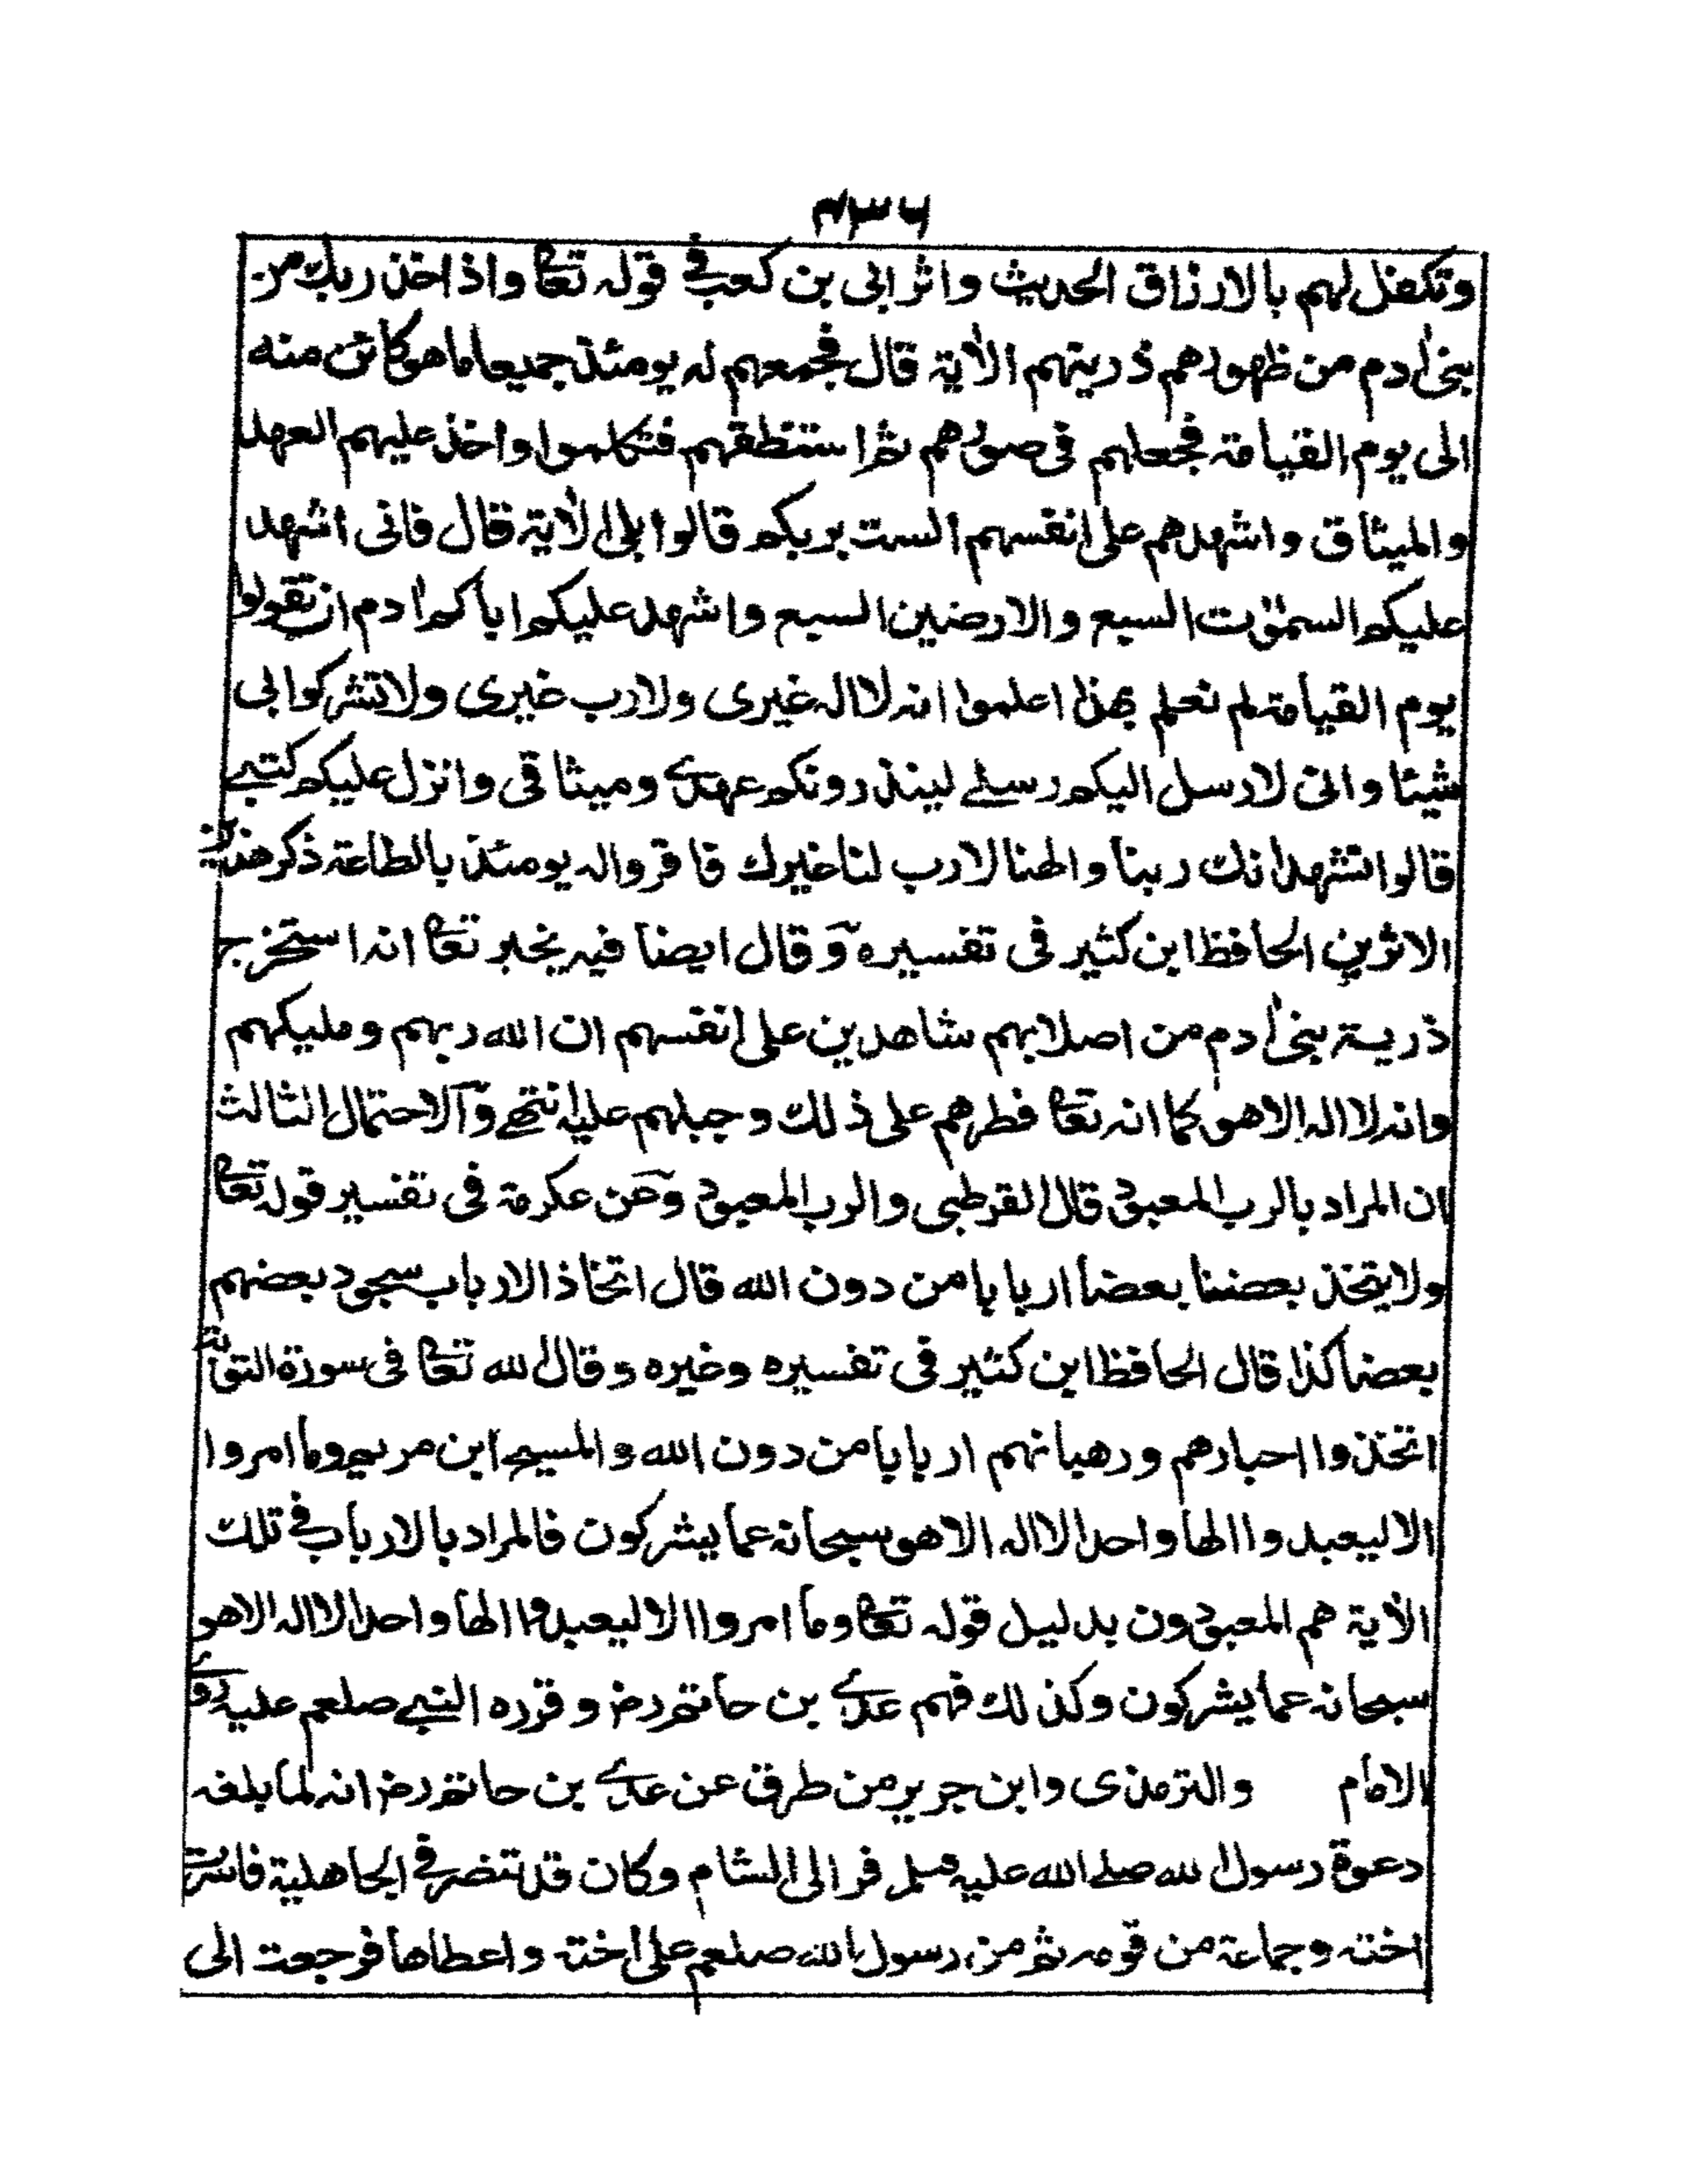 ۴۳۶
وتكفل لهم بالارزاق الحديث واثر ابي بن كعب في قوله تعالى واذ اخذ ربك من
بني اٰدم من ظهورهم ذريتهم الاٰية قال فجمعهم له يومئذ جميعا ماهو كائن منه
الى يوم القيامة فجعلهم في صورهم ثم استنطقهم فتكلموا واخذ عليهم العهد
والميثاق واشهدهم على انفسهم الست بربكم قالوا بلى الاٰية قال فاني اشهد
عليكم السمٰوٰت السبع والارضين السبع واشهد عليكم اباكم اٰدم ان تقولوا
يوم القيامة لم نعلم بهذا اعلموا انه لا اله غيري ولارب غيري ولا تشركوا بي
شيئا واني لارسل اليكم رسلي لينذرونكم عهدي وميثاقي وانزل عليكم كتبي
قالوا نشهد انك ربنا والهنا لارب لنا غيرك فاقروا له يومئذ بالطاعة ذكر هذين
الاثرين الحافظ ابن كثير في تفسيره وقال ايضا فيه يخبر تعالى انه استخرج
ذرية بني اٰدم من اصلابهم شاهدين على انفسهم ان الله ربهم ومليكهم
وانه لا اله الا هو كما انه تعالى فطرهم على ذلك وجبلهم عليه انتهى والاحتمال الثالث
ان المراد بالرب المعبود قال القرطبي والرب المعبود وعن عكرمة في تفسير قوله تعالى
ولا يتخذ بعضنا بعضا اربابا من دون الله قال اتخاذ الارباب سجود بعضهم
بعضا كذا قال الحافظ ابن كثير في تفسيره وغيره وقال الله تعالى في سورة التوبة
اتخذوا احبارهم ورهبانهم اربابا من دون الله والمسيح ابن مريم وما امروا
الا ليعبدوا الها واحدا لا اله الا هو سبحانه عما يشركون فالمراد بالارباب في تلك
الاٰية هم المعبودون بدليل قوله تعالى وما امروا الا ليعبدوا الها واحدا لا اله الا هو
سبحانه عما يشركون وكذلك فهم عدي بن حاتم رض وقرره النبي صلعم عليه روى
الامام والترمذي وابن جرير من طرق عن عدي بن حاتم رض انه لما بلغه
دعوة رسول الله صلى الله عليه وسلم فر الى الشام وكان قد تنصر في الجاهلية فاسرت
اخته وجماعة من قومه ثم من رسول الله صلعم على اخته واعطاها فرجعت الى